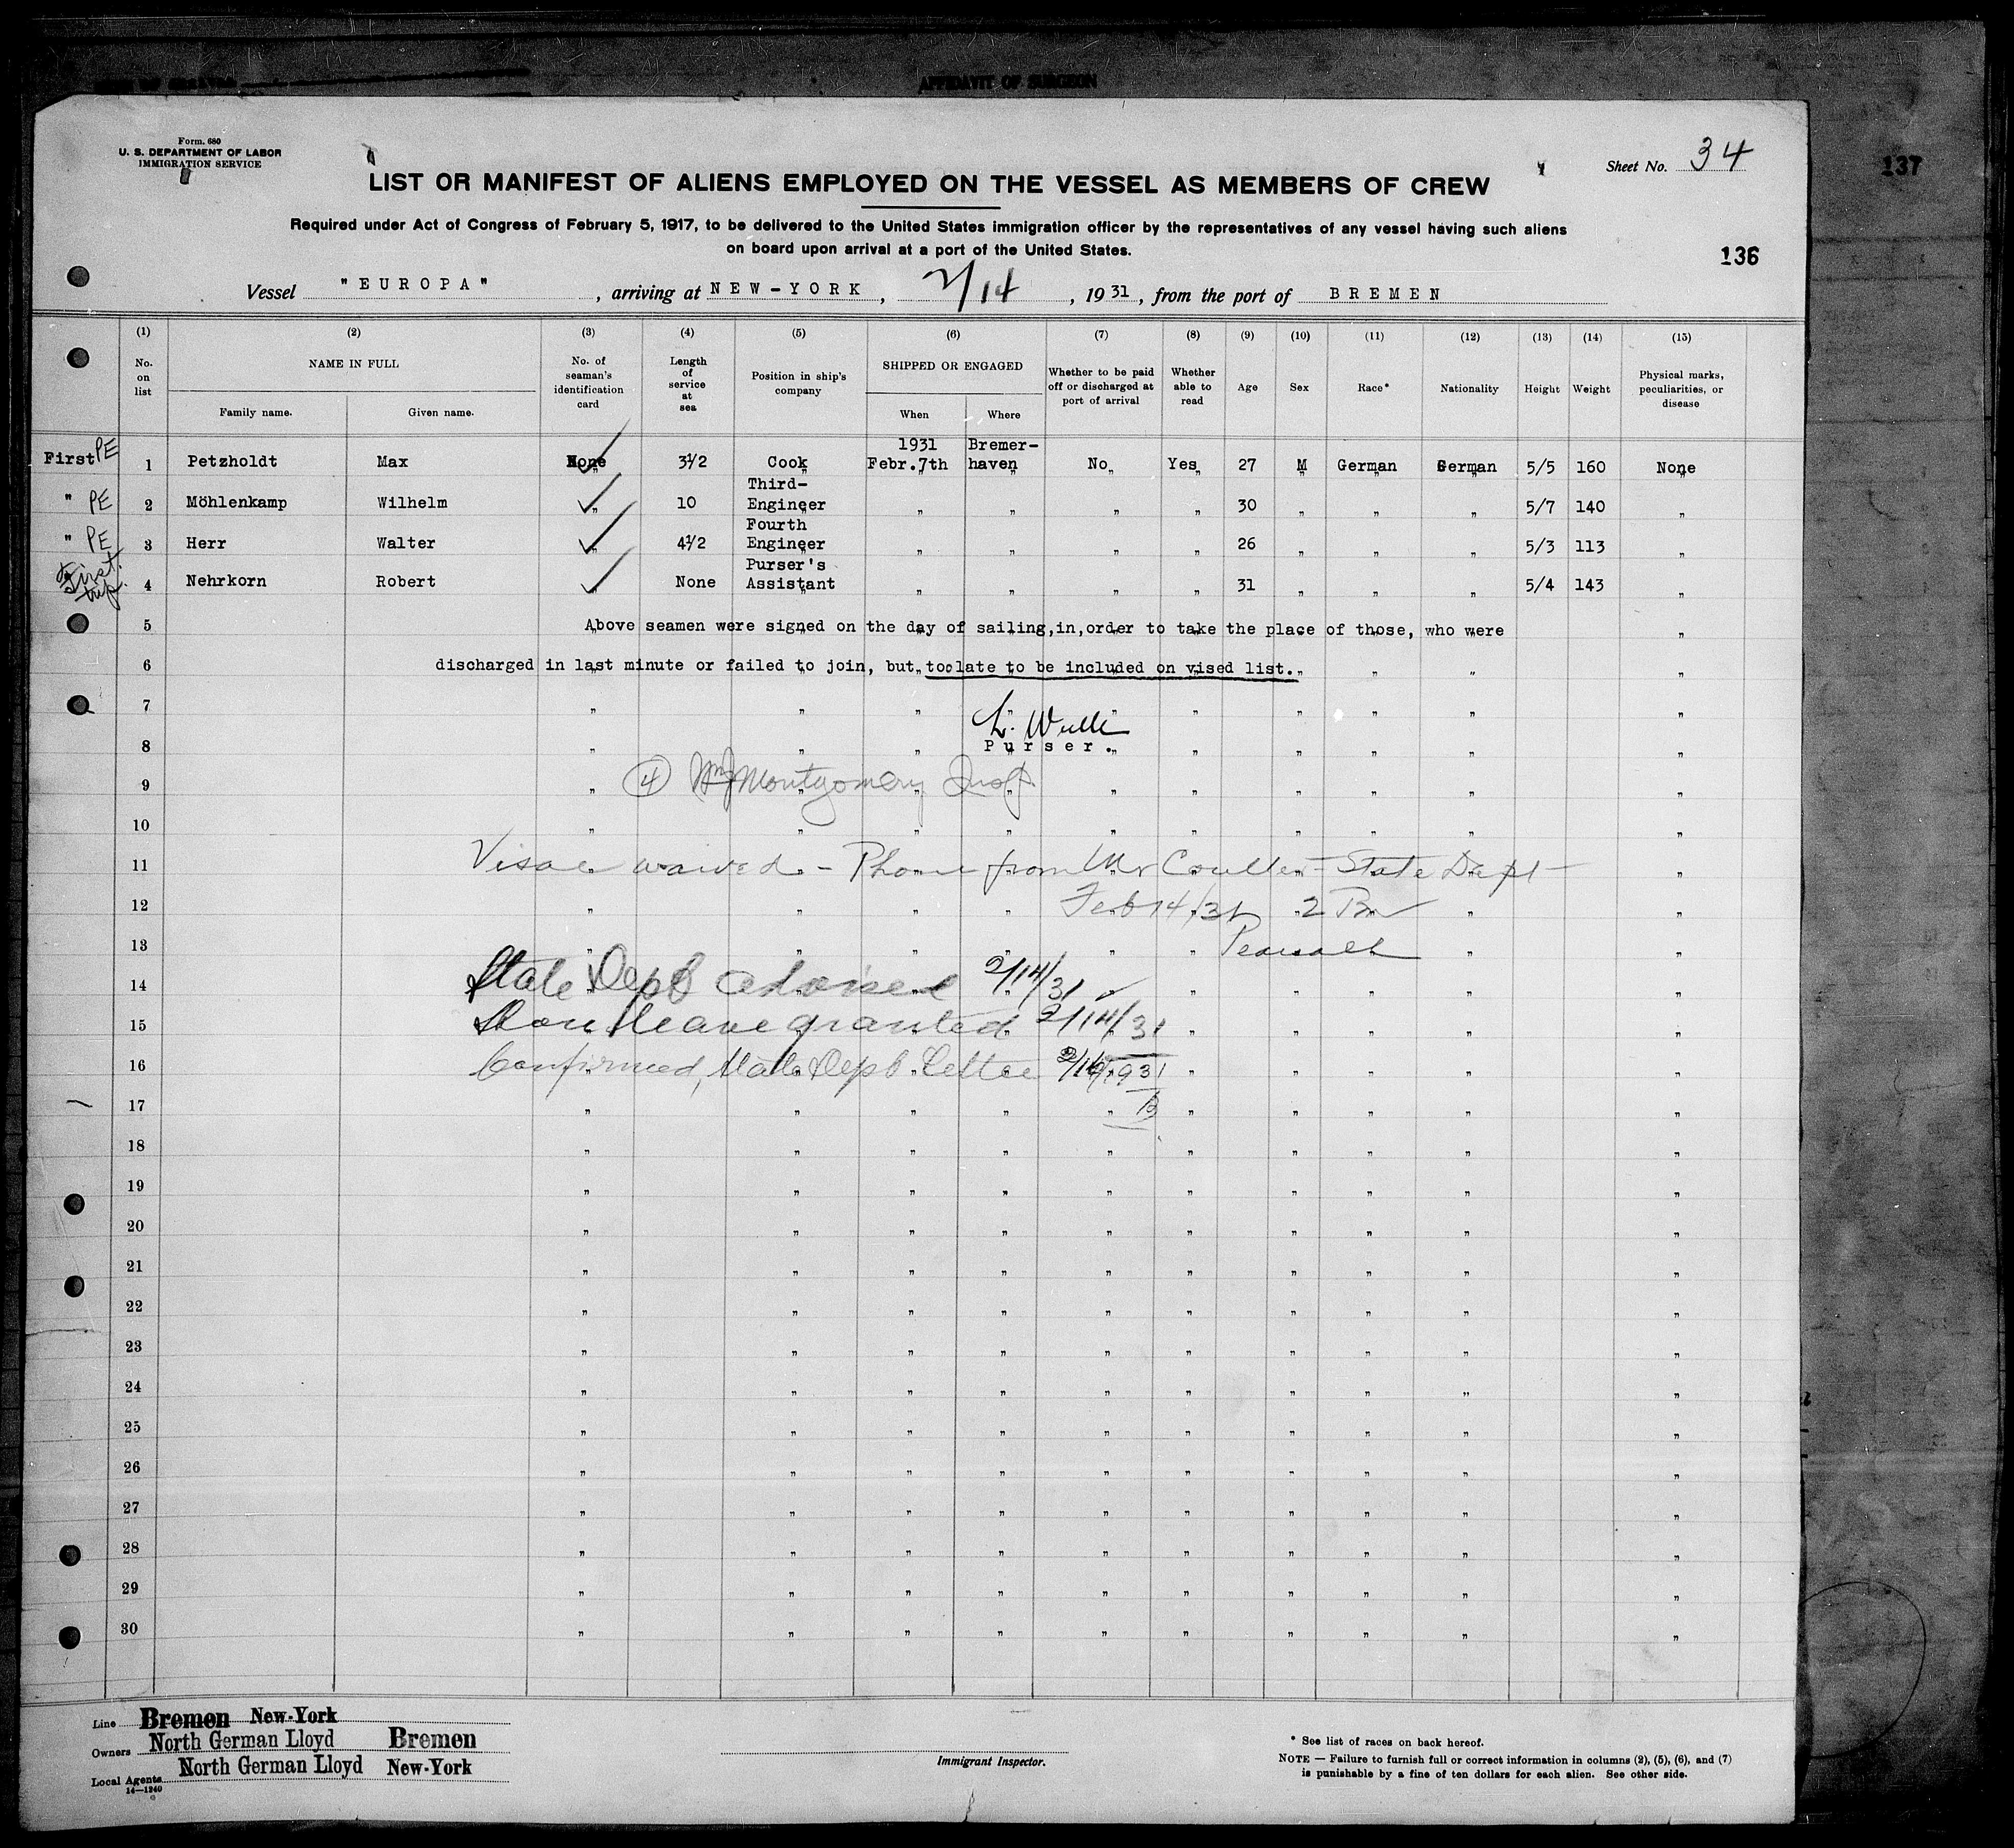 AFFIDAVIT OF SURGEON
Form. 680
U. S. DEPARTMENT OF LABOR
IMMIGRATION SERVICE
Sheet No. 34
137
LIST OR MANIFEST OF ALIENS EMPLOYED ON THE VESSEL AS MEMBERS OF CREW
Required under Act of Congress of February 5, 1917, to be delivered to the United States immigration officer by the representatives of any vessel having such aliens
on board upon arrival at a port of the United States.
136
Vessel "EUROPA", arriving at NEW-YORK, 2/14, 1931, from the port of BREMEN
(1) (2) (3) (4) (5) (6) (7) (8) (9) (10) (11) (12) (13) (14) (15)
No. on list
NAME IN FULL
Family name. Given name.
No. of seaman's identification card
Length of service at sea
Position in ship's company
SHIPPED OR ENGAGED
When Where
Whether to be paid off or discharged at port of arrival
Whether able to read
Age
Sex
Race*
Nationality
Height
Weight
Physical marks, peculiarities, or disease
First PE 1 Petzholdt Max None 3½ Cook 1931 Febr. 7th Bremer-haven No Yes 27 M German German 5/5 160 None
" PE 2 Möhlenkamp Wilhelm " 10 Third-Engineer " " " " 30 " " " 5/7 140 "
" PE 3 Herr Walter " 4½ Fourth Engineer " " " " 26 " " " 5/3 113 "
First trip. 4 Nehrkorn Robert " None Purser's Assistant " " " " 31 " " " 5/4 143 "
5 Above seamen were signed on the day of sailing, in, order to take the place of those, who were
6 discharged in last minute or failed to join, but toolate to be included on vised list.
7
8 Purser.
9 4 Wm J Montgomery
10
11 Visae waived - Phone from Mr Coulter - State Dept -
12 Feb 14/31
13
14 State Dept advised 2/14/31
15 Shore leave granted 2/14/31
16 Confirmed, State Dept Letter
17
18
19
20
21
22
23
24
25
26
27
28
29
30
Line Bremen New-York
Owners North German Lloyd Bremen
Local Agents North German Lloyd New-York
14—1240
Immigrant Inspector.
* See list of races on back hereof.
NOTE — Failure to furnish full or correct information in columns (2), (5), (6), and (7)
is punishable by a fine of ten dollars for each alien. See other side.